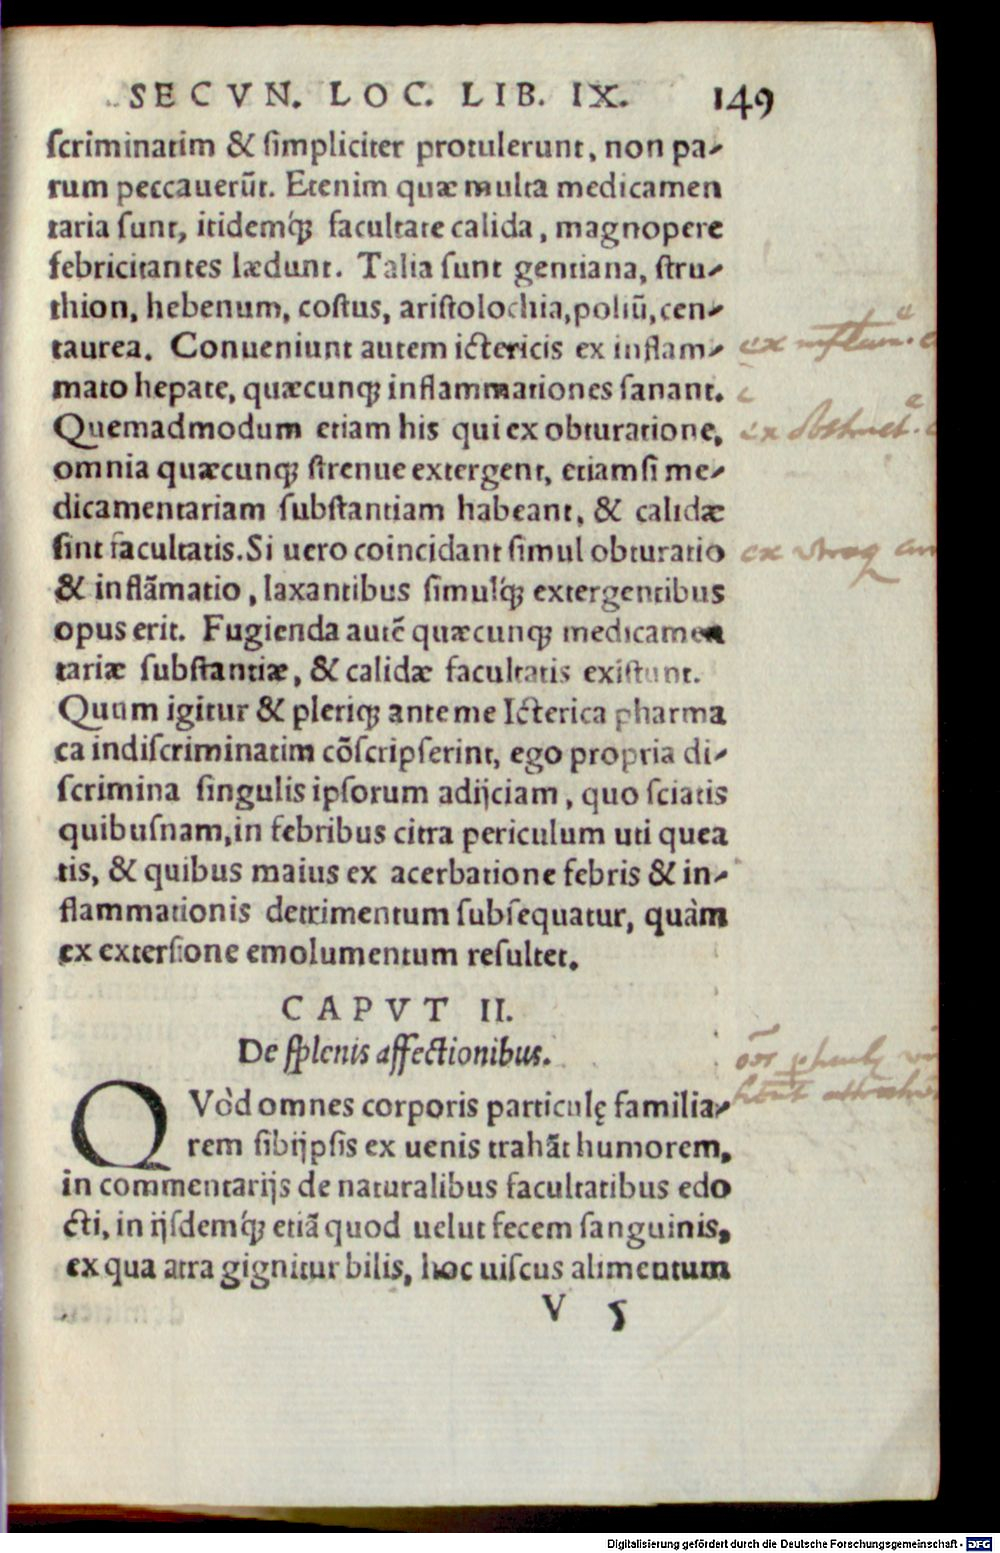 SECVN. LOC. LIB. IX. 149
ſcriminatim & ſimpliciter protulerunt, non pa-
rum peccauerũt. Etenim quæ multa medicamen
taria ſunt, itidemq́ꝫ facultate calida, magnopere
febricitantes lædunt. Talia ſunt gentiana, ſtru-
thion, hebenum, coſtus, ariſtolochia, poliũ, cen-
taurea. Conueniunt autem ictericis ex inflam-
mato hepate, quæcunqꝫ inflammationes ſanant.
Quemadmodum etiam his qui ex obturatione,
omnia quæcunqꝫ ſtrenue extergent, etiamſi me-
dicamentariam ſubſtantiam habeant, & calidæ
ſint facultatis. Si uero coincidant ſimul obturatio
& inflãmatio, laxantibus ſimulq́ꝫ extergentibus
opus erit. Fugienda autẽ quæcunqꝫ medicamen
tariæ ſubſtantiæ, & calidæ facultatis exiſtunt.
Quum igitur & pleriqꝫ ante me Icterica pharma
ca indiſcriminatim cõſcripſerint, ego propria di-
ſcrimina ſingulis ipſorum adijciam, quo ſciatis
quibuſnam, in febribus citra periculum uti quea
tis, & quibus maius ex acerbatione febris & in-
flammationis detrimentum ſubſequatur, quàm
ex exterſione emolumentum reſultet.
CAPVT II.
De ſplenis affectionibus.
QVòd omnes corporis particulę familia-
rem ſibijpſis ex uenis trahãt humorem,
in commentarijs de naturalibus facultatibus edo
cti, in ijſdemq́ꝫ etiã quod uelut fecem ſanguinis,
ex qua atra gignitur bilis, hoc uiſcus alimentum
V 5
ex
ex
ex
Digitalisierung gefördert durch die Deutsche Forschungsgemeinschaft - DFG